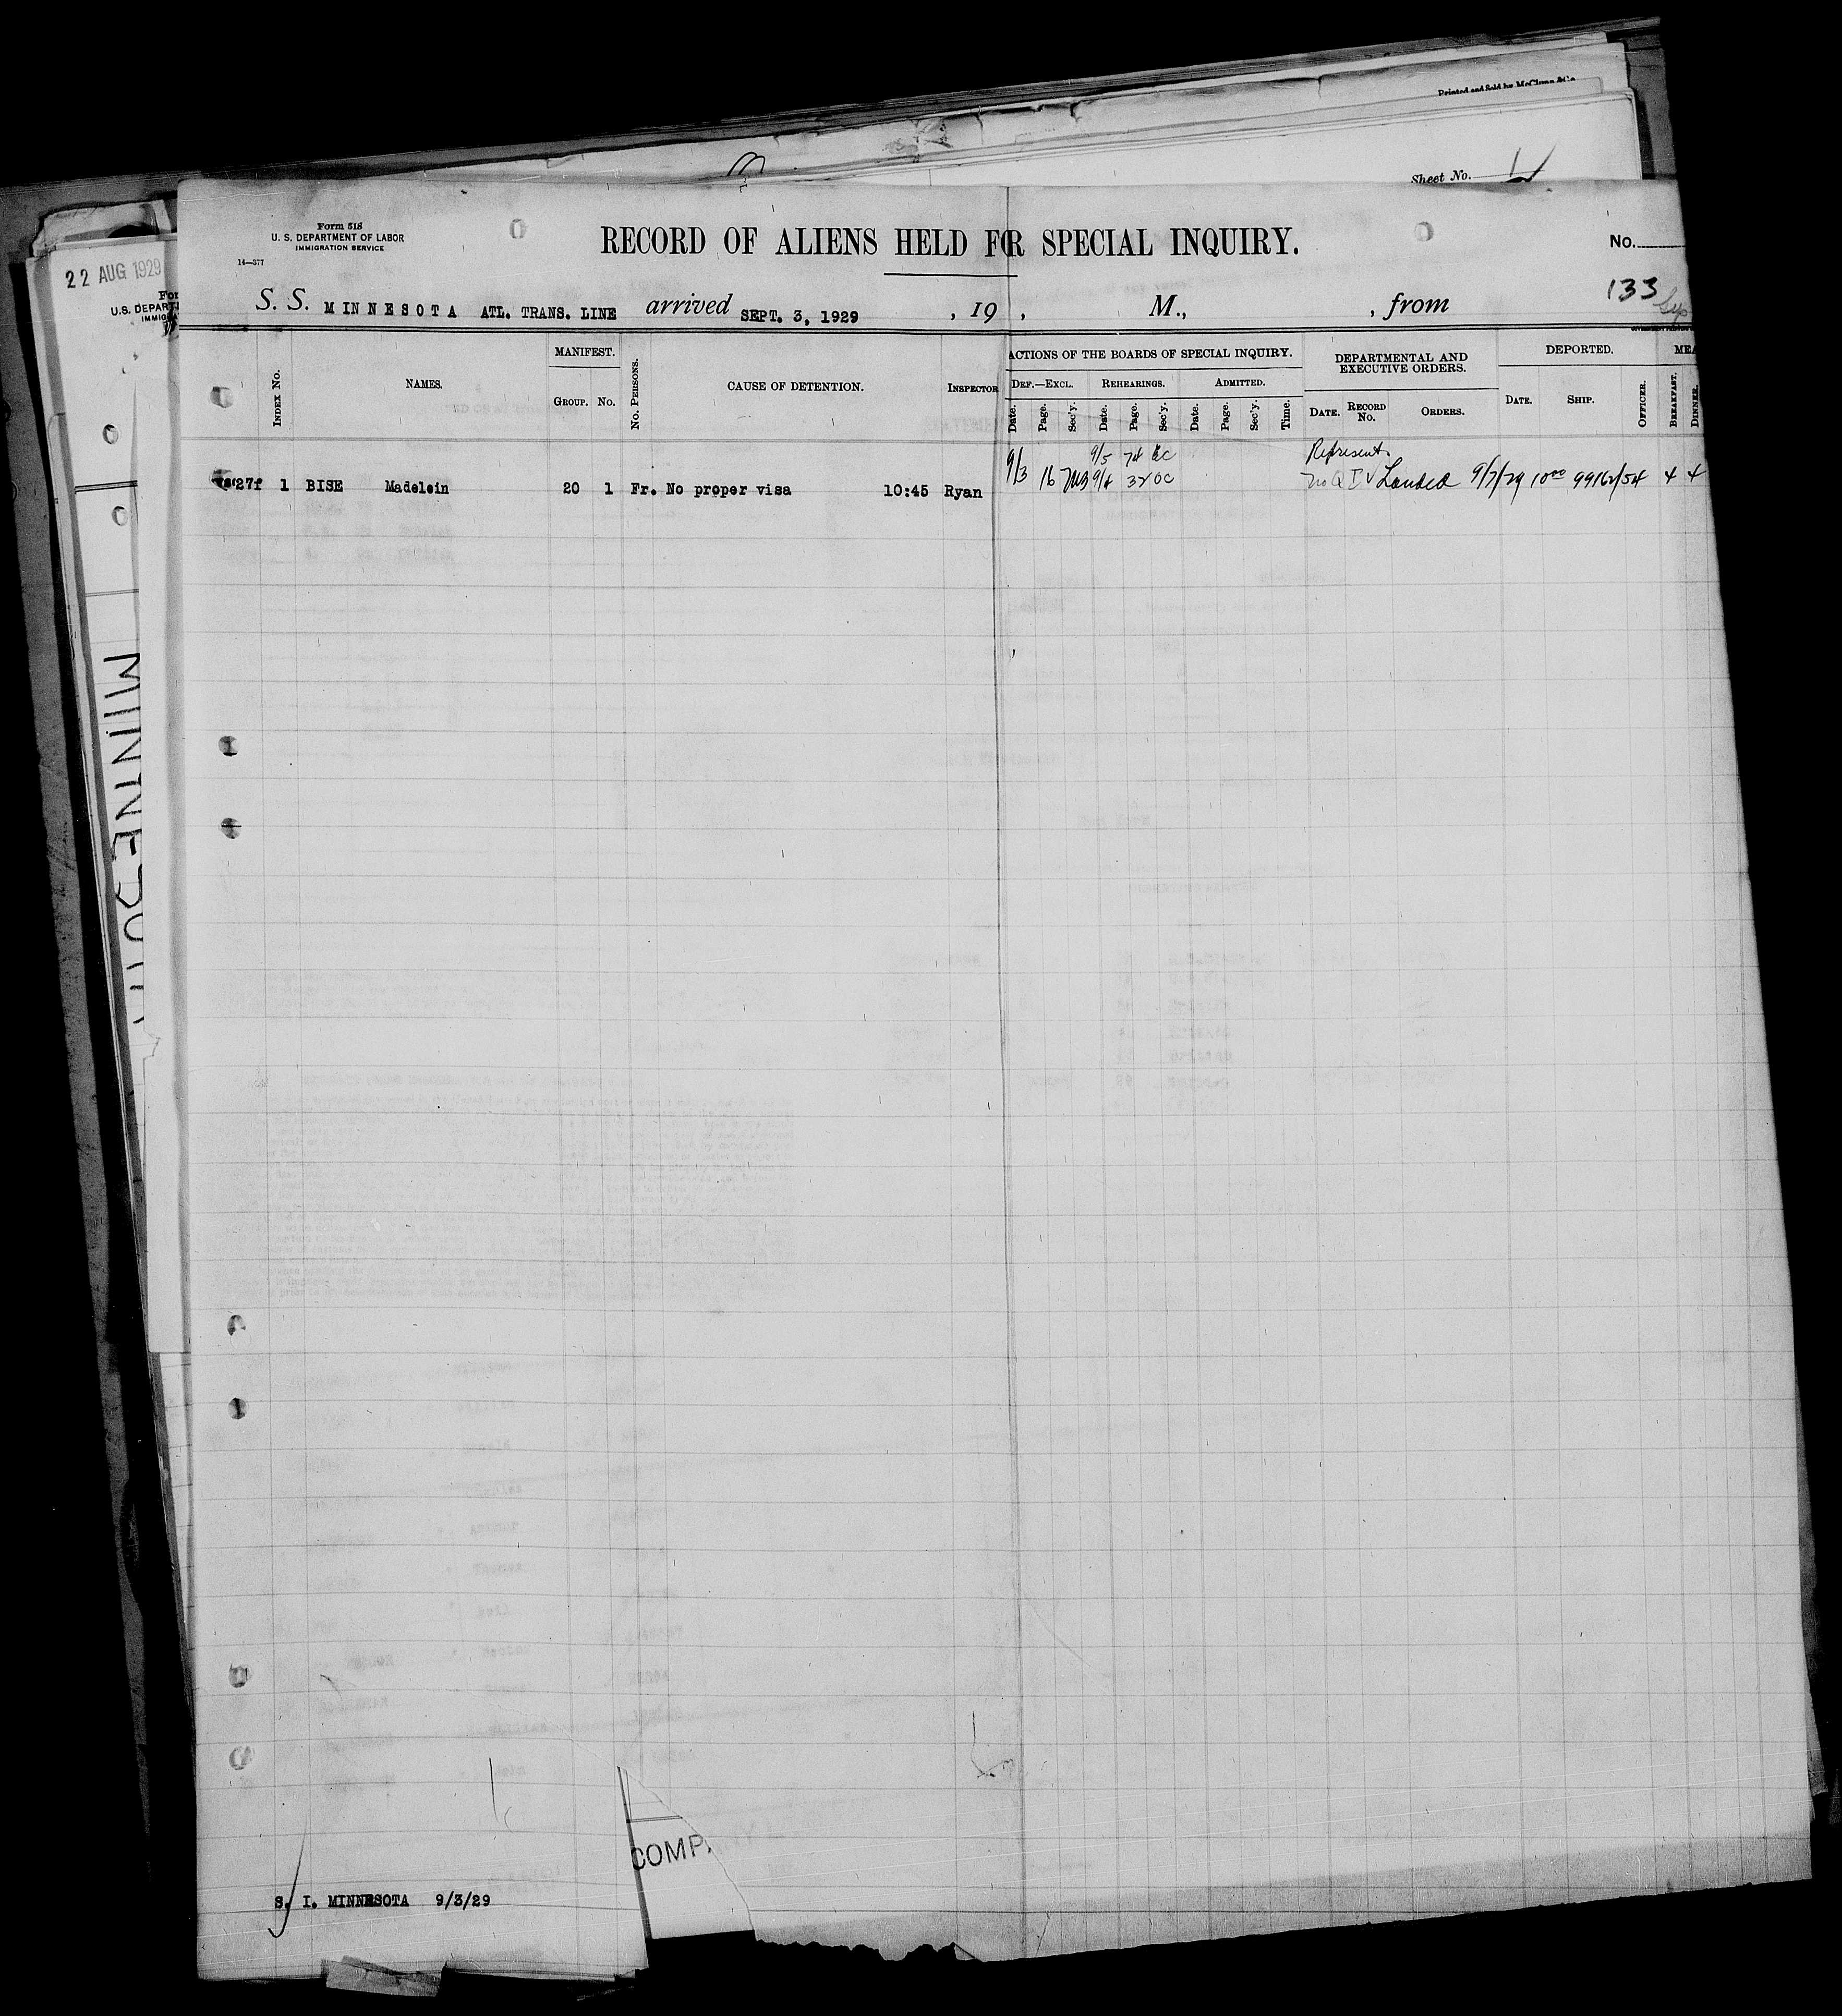 Printed and Sold by McClurg & Co
Sheet No.
22 AUG 1929
For
U.S. DEPART
IMMIG
MINNESOT
Form 518
U. S. DEPARTMENT OF LABOR
IMMIGRATION SERVICE
14—377
RECORD OF ALIENS HELD FOR SPECIAL INQUIRY.
No.
133
S. S. MINNESOTA ATL. TRANS. LINE arrived SEPT. 3, 1929 , 19 , M., , from
INDEX No. NAMES. MANIFEST. GROUP. No. No. PERSONS. CAUSE OF DETENTION. INSPECTOR
ACTIONS OF THE BOARDS OF SPECIAL INQUIRY.
DEF.—EXCL. REHEARINGS. ADMITTED.
Date. Page. Sec'y. Date. Page. Sec'y. Date. Page. Sec'y. Time.
DEPARTMENTAL AND EXECUTIVE ORDERS.
DATE. RECORD No. ORDERS.
DEPORTED.
DATE. SHIP. OFFICER.
MEA
BREAKFAST. DINNER.
9/5 74 Represent
27f 1 BISE Madelein 20 1 Fr. No proper visa 10:45 Ryan 9/3 16 9/4 32 OC no Q I V Landed 9/7/29 10 00 99162/54 4 4
COMP.
S. I. MINNESOTA 9/3/29